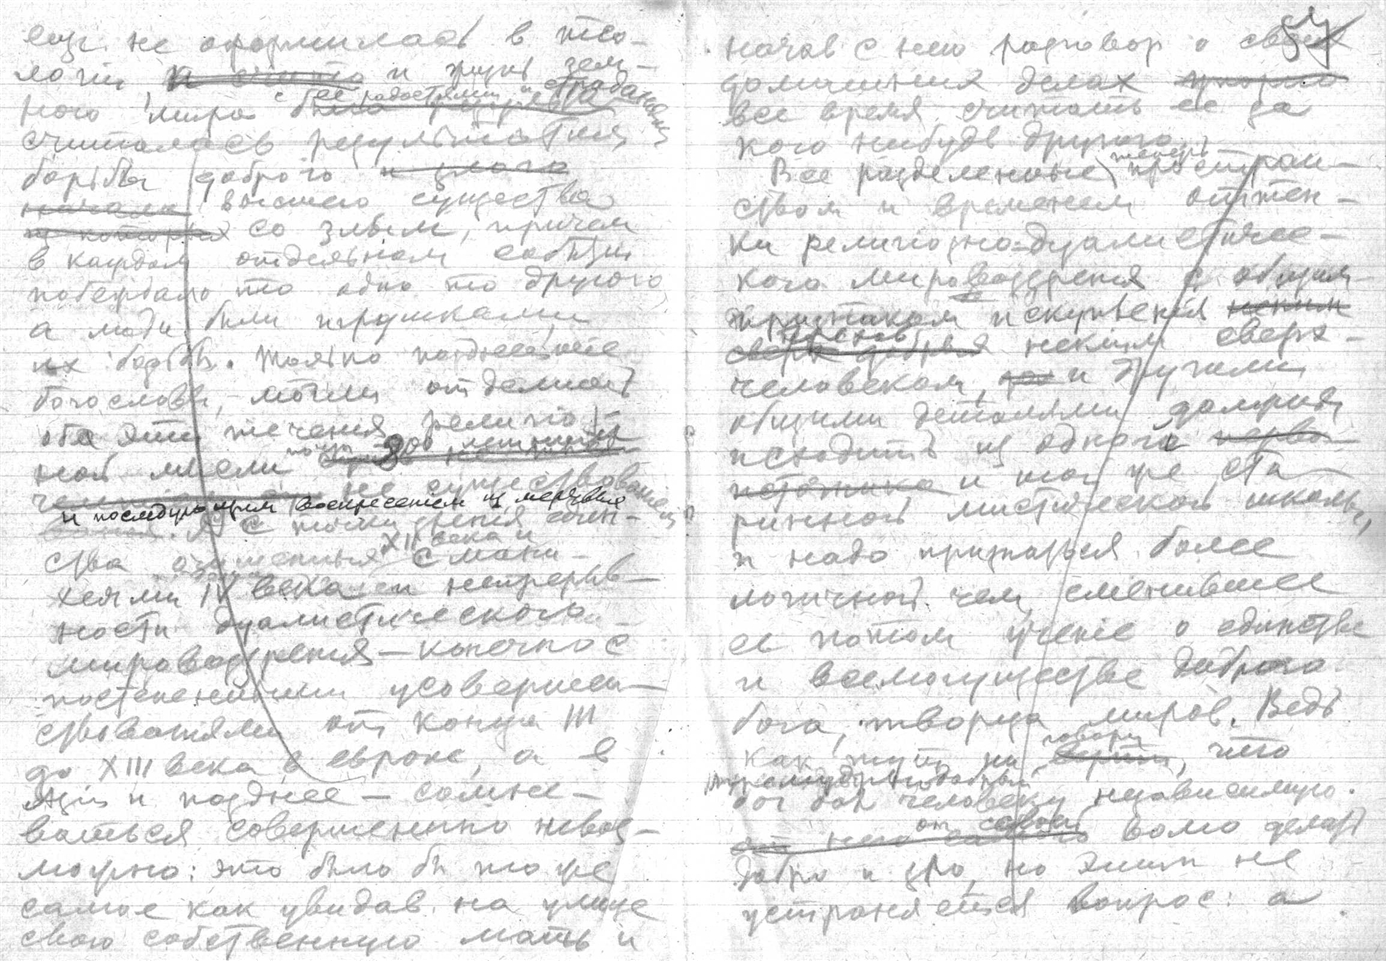 еще не оформилась в тео-
логии, и жизнь зем-
ного мира с ее радостями и страданиями
считалась результатом
борьбы доброго и злого
начала высшего существа
со злым, причем
в каждом отдельном событии
побеждало то одно то другого
а люди были игрушками
их борьбы. Только позднейшие
богословы, могли отделить
оба эти течения религиоз-
ной мысли
и последующим воскресением из мертвых
с точки зрения
ства XIII века и с мани-
хеями IV века и непрерыв-
ности дуалистического
мировоззрения — конечно с
постепенными усовершен-
ствованиями от конца III
до XIII века в европе, а в
Азии и позднее — сомне-
ваться совершенно невоз-
можно: это было бы то же
самое как увидав на улице
свою собственную мать и
54
начав с нею разговор о своих
домашних делах
все время считать ее за
кого нибудь другого.
Все разделенные теперь простран-
ством и временем оттен-
ки религиозно-дуалистичес-
кого мировоззрения с общим
признаком искупления неким
некиим сверх-
человеком, и другими
общими деталями должны
исходить из одного перво-
источника и той же ста-
ринной мистической школы,
и надо признаться более
логичной чем сменившее
ее потом учение о единстве
и всемогуществе доброго
бога, творца миров. Ведь
как тут ни говори, что
бог дал человеку независимую
от него от своей волю делать
добро и зло, но этим не
устраняется вопрос: а